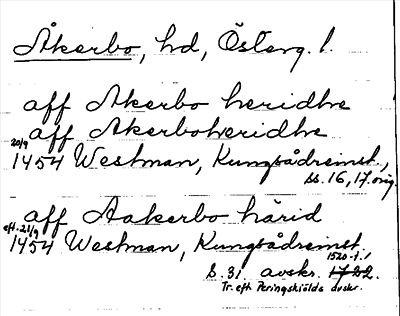 Åkerbo, hd, Österg. l.
aff Akerbo heridhe
aff Akerboheridhe
20/9
1454 Westman, Kungsådreinst.,
ss. 16, 17. orig.
aff Aakerbo härid
eft. 21/9
1454 Westman, Kungsådreinst.
s. 31. avskr. 1722. 1520-t.!
Tr. eft. Peringskiölds avskr.